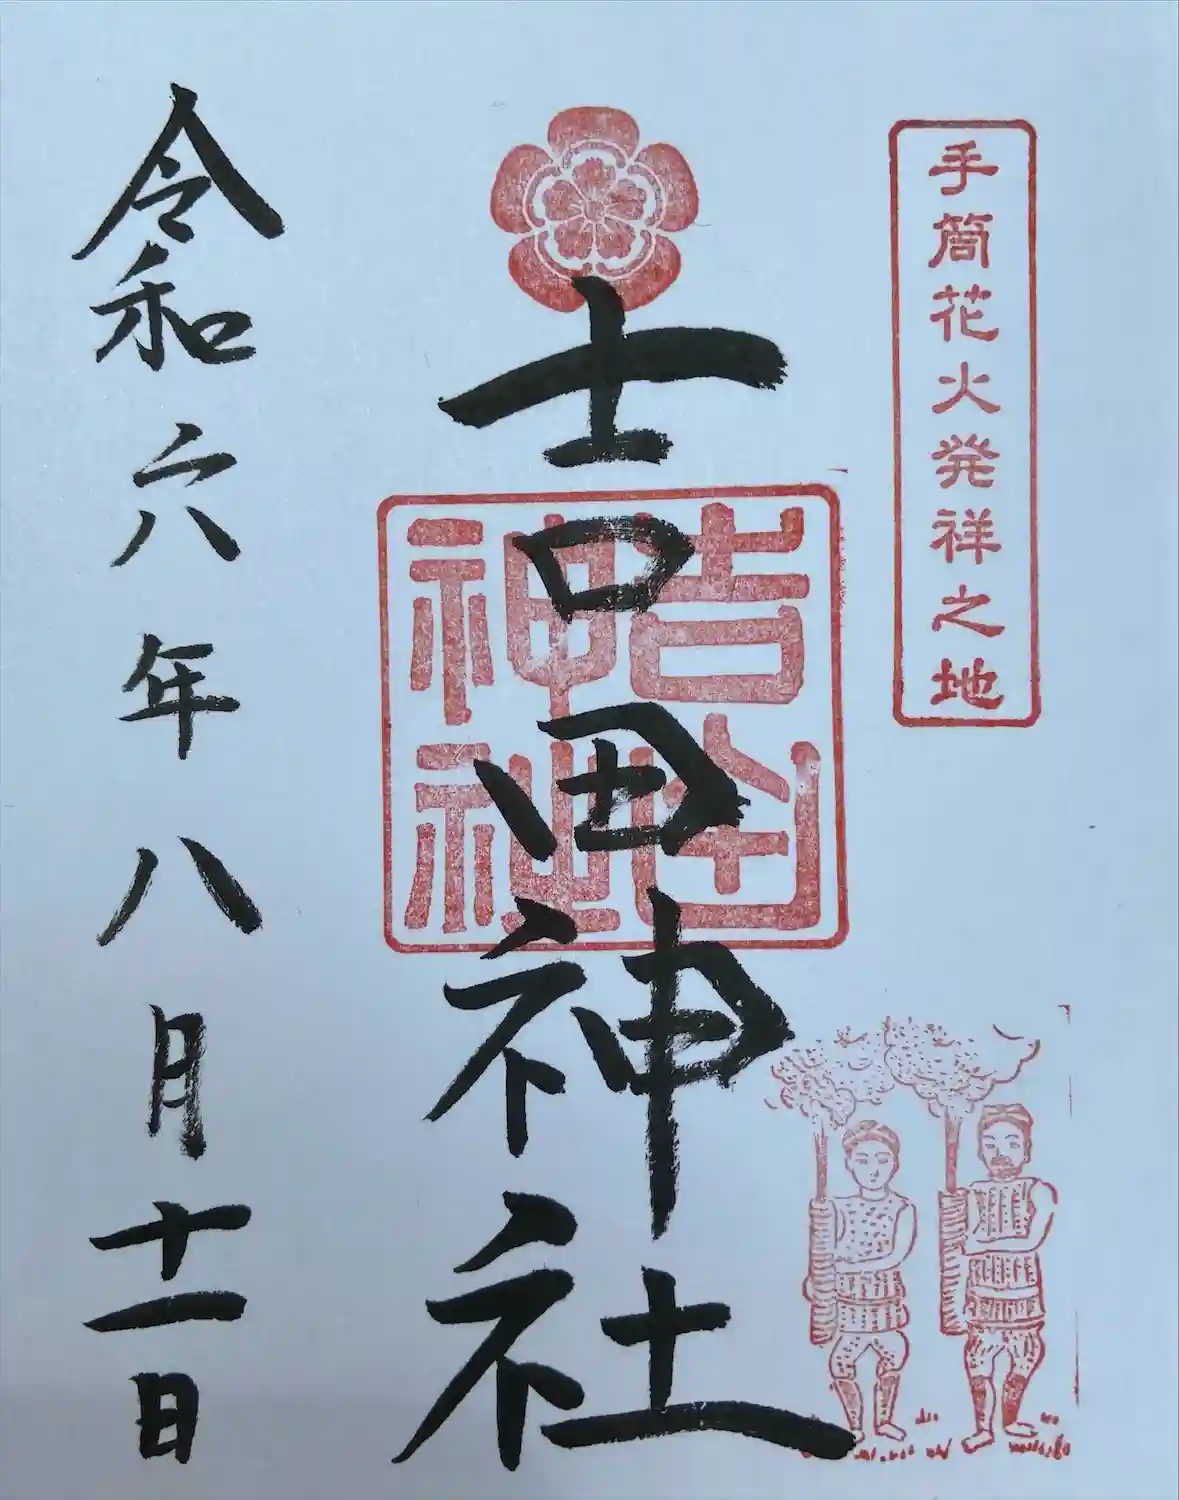 手筒花火発祥之地
吉田神社
吉田
神社
令和六年八月十一日